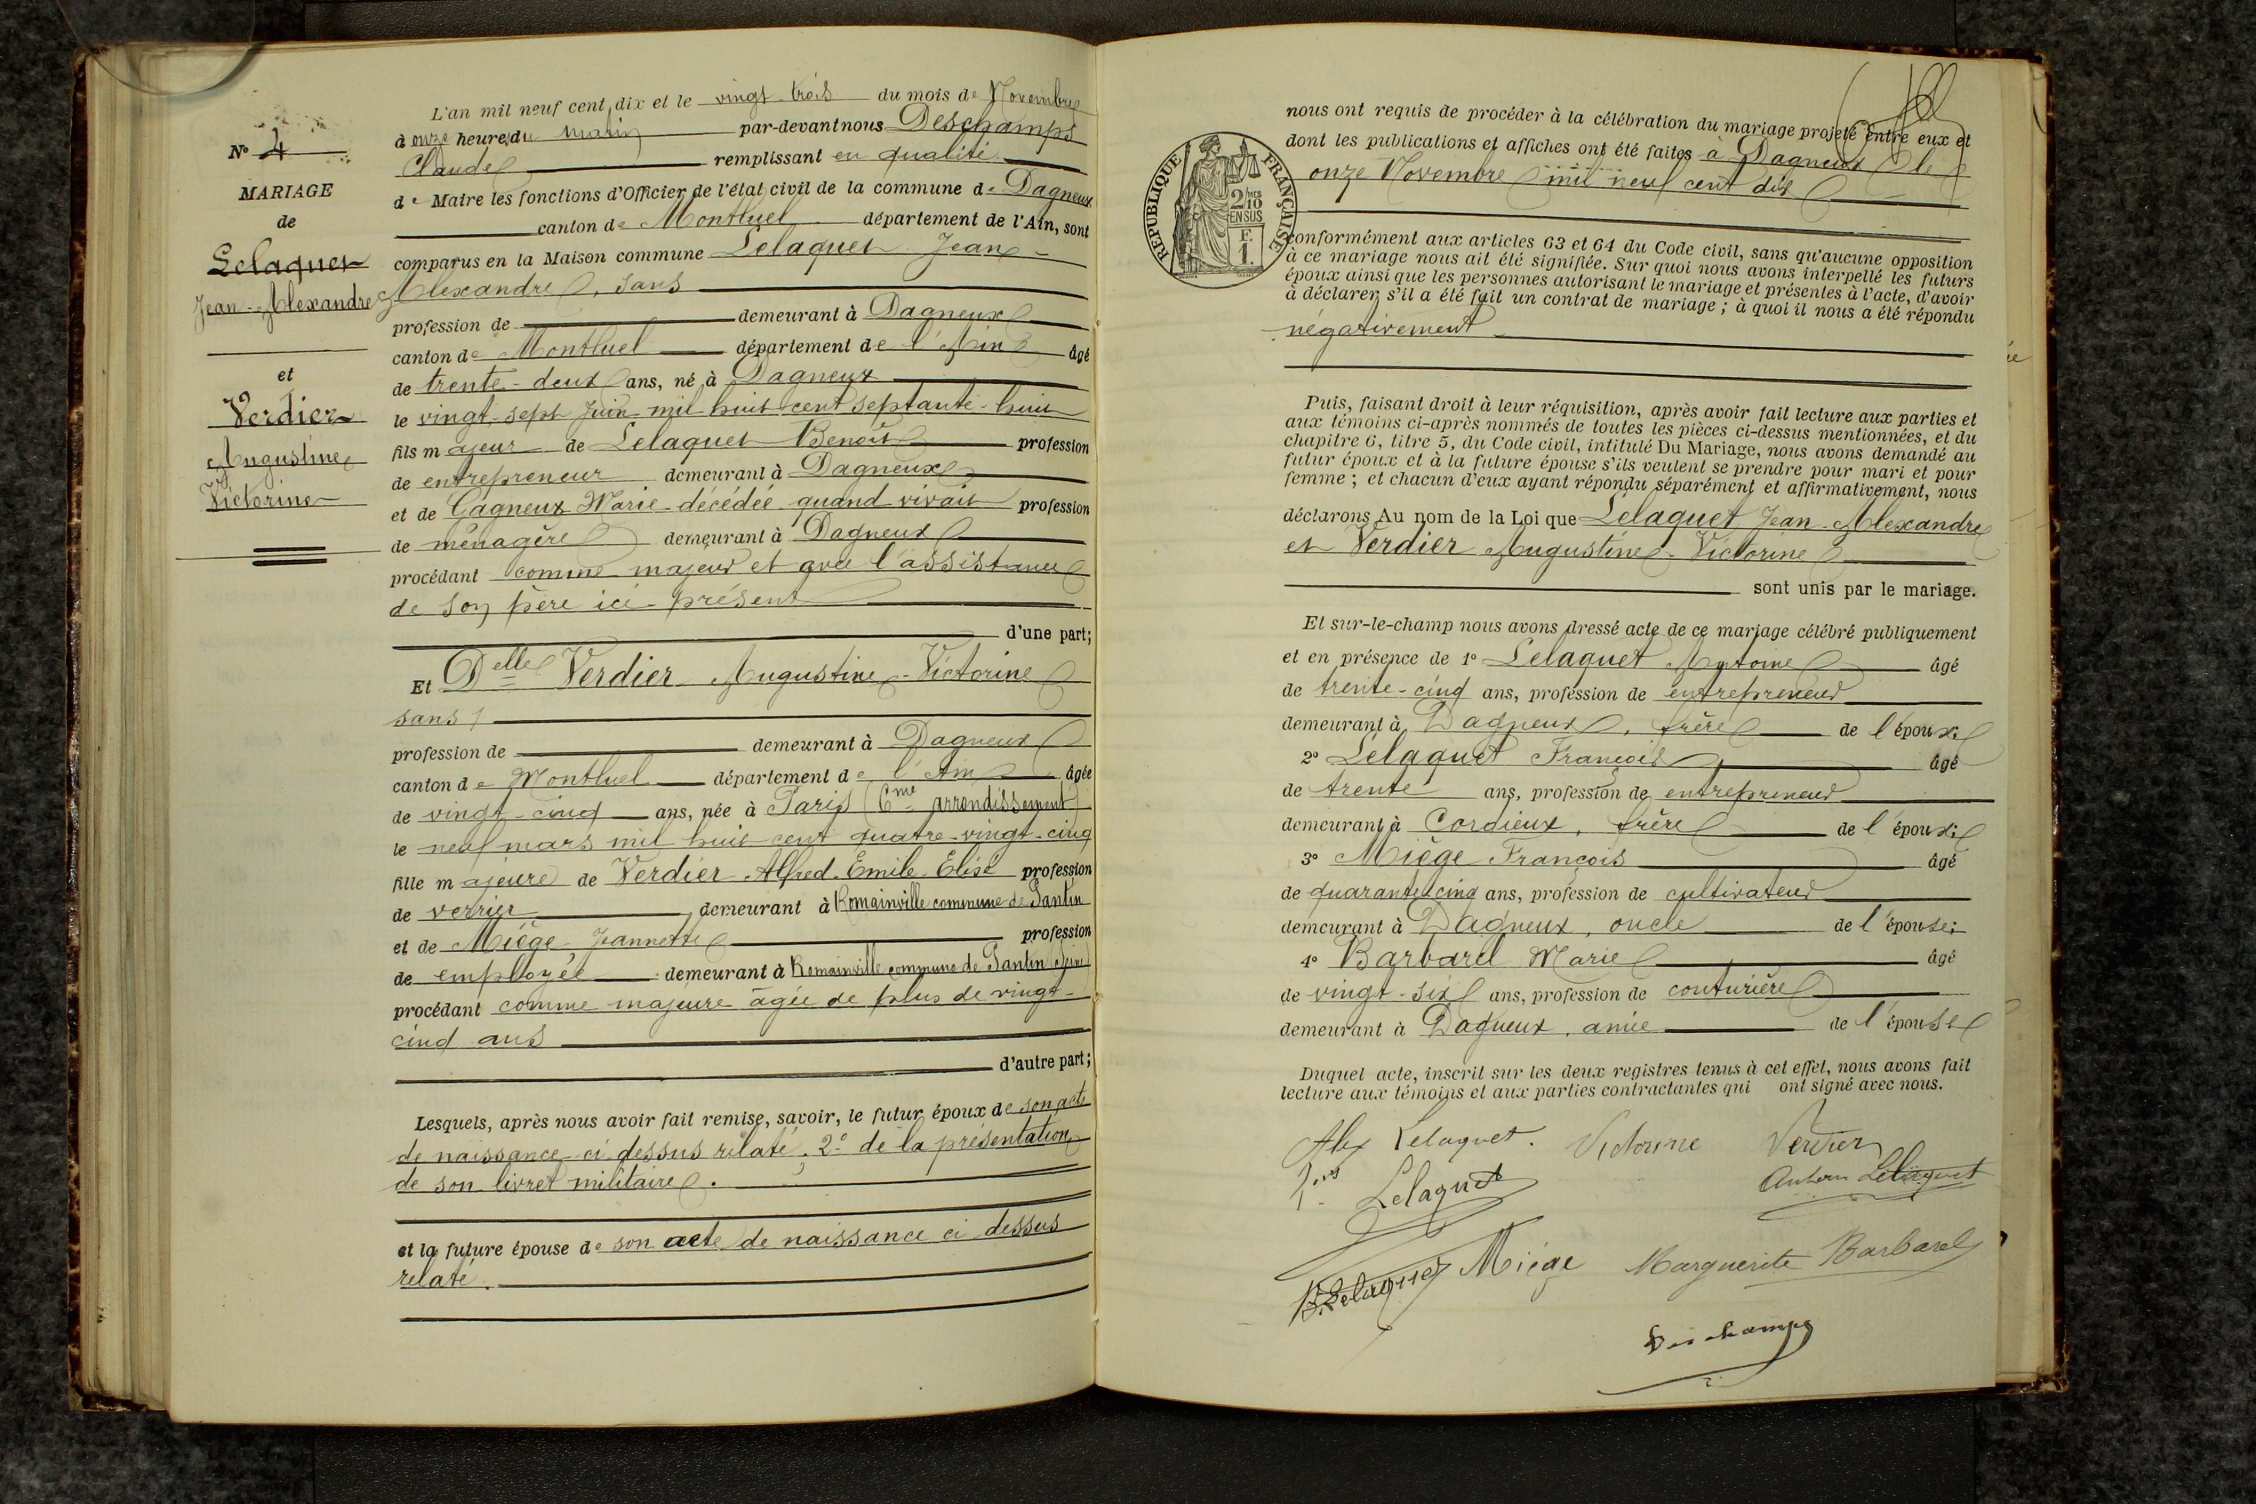 N° 4
MARIAGE
de
Lelaquet
Jean-Alexandre
et
Verdier
Augustine
Victorine
L'an mil neuf cent dix et le vingt-trois du mois de Novembre
à onze heures du matin par-devant nous Deschamps
Claude remplissant en qualité
de Maire les fonctions d'Officier de l'état civil de la commune de Dagneux
canton de Montluel département de l'Ain, sont
comparus en la Maison commune Lelaquet Jean-
Alexandre, sans
profession de demeurant à Dagneux
canton de Montluel département de l'Ain âgé
de trente-deux ans, né à Dagneux
le vingt-sept Juin mil huit cent septante-huit
fils majeur de Lelaquet Benoît profession
de entrepreneur demeurant à Dagneux
et de Cagneux Marie décédée quand vivait profession
de ménagère demeurant à Dagneux
procédant comme majeur et avec l'assistance
de son père ici présent
d'une part;
Et Delle Verdier Augustine-Victorine
sans
profession de demeurant à Dagneux
canton de Montluel département de l'Ain âgée
de vingt-cinq ans, née à Paris (6me arrondissement)
le neuf mars mil huit cent quatre-vingt-cinq
fille majeure de Verdier Alfred-Émile-Élisé profession
de verrier demeurant à Romainville commune de Pantin
et de Miège Jeannette profession
de employée demeurant à Romainville commune de Pantin (Seine)
procédant comme majeure âgée de plus de vingt-
cinq ans
d'autre part;
Lesquels, après nous avoir fait remise, savoir, le futur époux de son acte
de naissance ci dessus relaté; 2° de la présentation
de son livret militaire.
et la future épouse de son acte de naissance ci dessus
relaté.
RÉPUBLIQUE FRANÇAISE
2/10
EN SUS
F.
1.
nous ont requis de procéder à la célébration du mariage projeté entre eux et
dont les publications et affiches ont été faites à Dagneux le
onze Novembre mil neuf cent dix
conformément aux articles 63 et 64 du Code civil, sans qu'aucune opposition
à ce mariage nous ait été signifiée. Sur quoi nous avons interpellé les futurs
époux ainsi que les personnes autorisant le mariage et présentes à l'acte, d'avoir
à déclarer s'il a été fait un contrat de mariage; à quoi il nous a été répondu
négativement
Puis, faisant droit à leur réquisition, après avoir fait lecture aux parties et
aux témoins ci-après nommés de toutes les pièces ci-dessus mentionnées, et du
chapitre 6, titre 5, du Code civil, intitulé Du Mariage, nous avons demandé au
futur époux et à la future épouse s'ils veulent se prendre pour mari et pour
femme; et chacun d'eux ayant répondu séparément et affirmativement, nous
déclarons Au nom de la Loi que Lelaquet Jean-Alexandre
et Verdier Augustine-Victorine
sont unis par le mariage.
Et sur-le-champ nous avons dressé acte de ce mariage célébré publiquement
et en présence de 1° Lelaquet Antoine âgé
de trente-cinq ans, profession de entrepreneur
demeurant à Dagneux, frère de l'époux;
2° Lelaquet François âgé
de trente ans, profession de entrepreneur
demeurant à Cordieux, frère de l'époux;
3° Miège François âgé
de quarante cinq ans, profession de cultivateur
demeurant à Dagneux, oncle de l'épouse;
4° Barbarel Marie âgé
de vingt-six ans, profession de couturière
demeurant à Dagneux, amie de l'épouse
Duquel acte, inscrit sur les deux registres tenus à cet effet, nous avons fait
lecture aux témoins et aux parties contractantes qui ont signé avec nous.
Alex Lelaquet. Victorine Verdier
Fois Lelaquet Lelaquet
B. Lelaquet Miège Marguerite Barbarel
Deschamps